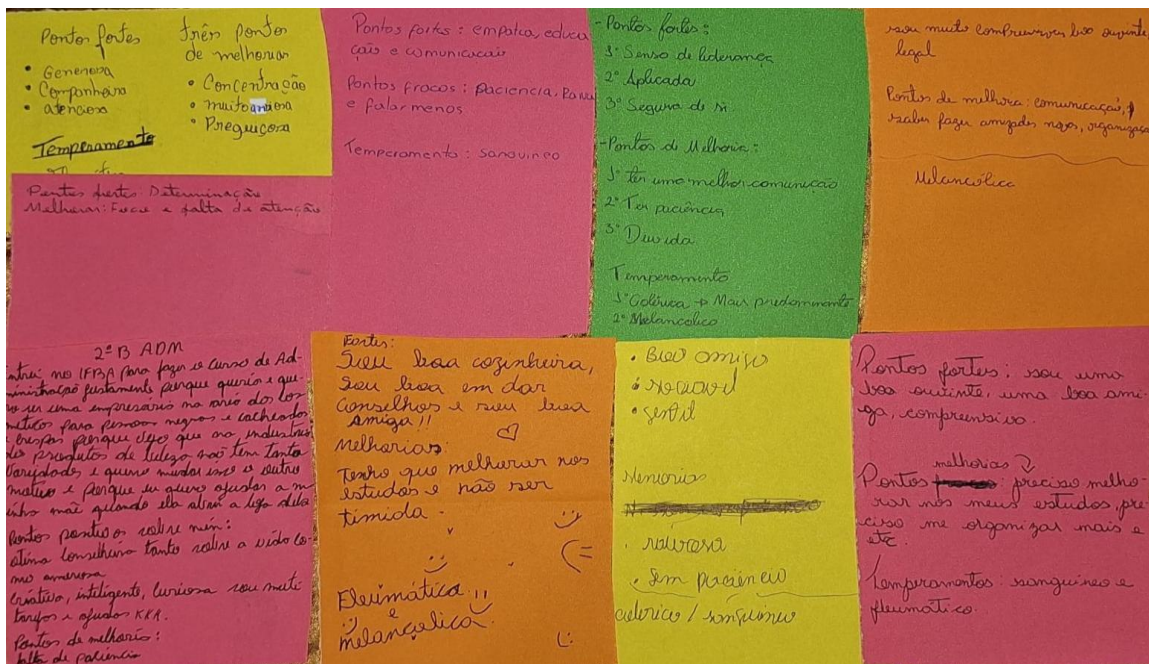 Pontos fortes
• Generosa
• Companheira
• atenciosa
Temperamento
três pontos
de melhorias
• Concentração
• muito ansiosa
• Preguiçosa
Pontos fortes Determinação
Melhorar: Foco e falta de atenção
Pontos fortes : empatia, educa
çais e comunicacais
Pontos fracos : paciencia, Raiva
e falar menos
Temperamento : Sanguineo
- Pontos fortes :
1º Senso de liderança
2º Aplicada
3º Segura de si
- Pontos de Melhoria :
1º ter uma melhor comunição
2º Ter paciência
3º Duvida
Temperamento
1º Colérica → Mais predominante
2º Melancolico
sou muito compreensiva boa ouvinte,
legal
Pontos de melhora: comunicação,
saber fazer amizades novas, organização
Melancólica
2º B ADM
entrei no IFBA para fazer o curso de Ad-
ministração justamente porque queria e que-
ro ser uma empresária no ramo dos cos-
méticos para pessoas negras e cacheados
e crespas porque vejo que na industria
dos produtos de beleza não tem tanta
variedades e quero mudar isso o outro
motivo e porque eu quero ajudar a m
inha mãe quando ela abrir a loja dela
Pontos positivos sobre min :
otima conselheira tanto sobre a vida co-
mo amorosa
criativa, inteligente, curiosa sou multi
tarefas e ajudar KKK.
Pontos de melhoria :
falta de paciência
Fortes:
Sou boa cozinheira,
Sou boa em dar
Conselhos e sou boa
amiga !!
Melhorias:
Tenho que melhorar nos
estudos e não ser
timida .
Fleumática !!
e
melancolica
• Bom amigo
• sociavel
• gentil
• Sem paciência
colerico / sanguineo
Pontos fortes : sou uma
boa ouvinte, uma boa ami-
ga, compreensiva.
melhorias
Pontos : preciso melho-
rar nos meus estudos, pre-
ciso me organizar mais e
etc.
Temperamentos : sanguíneo e
fleumático.